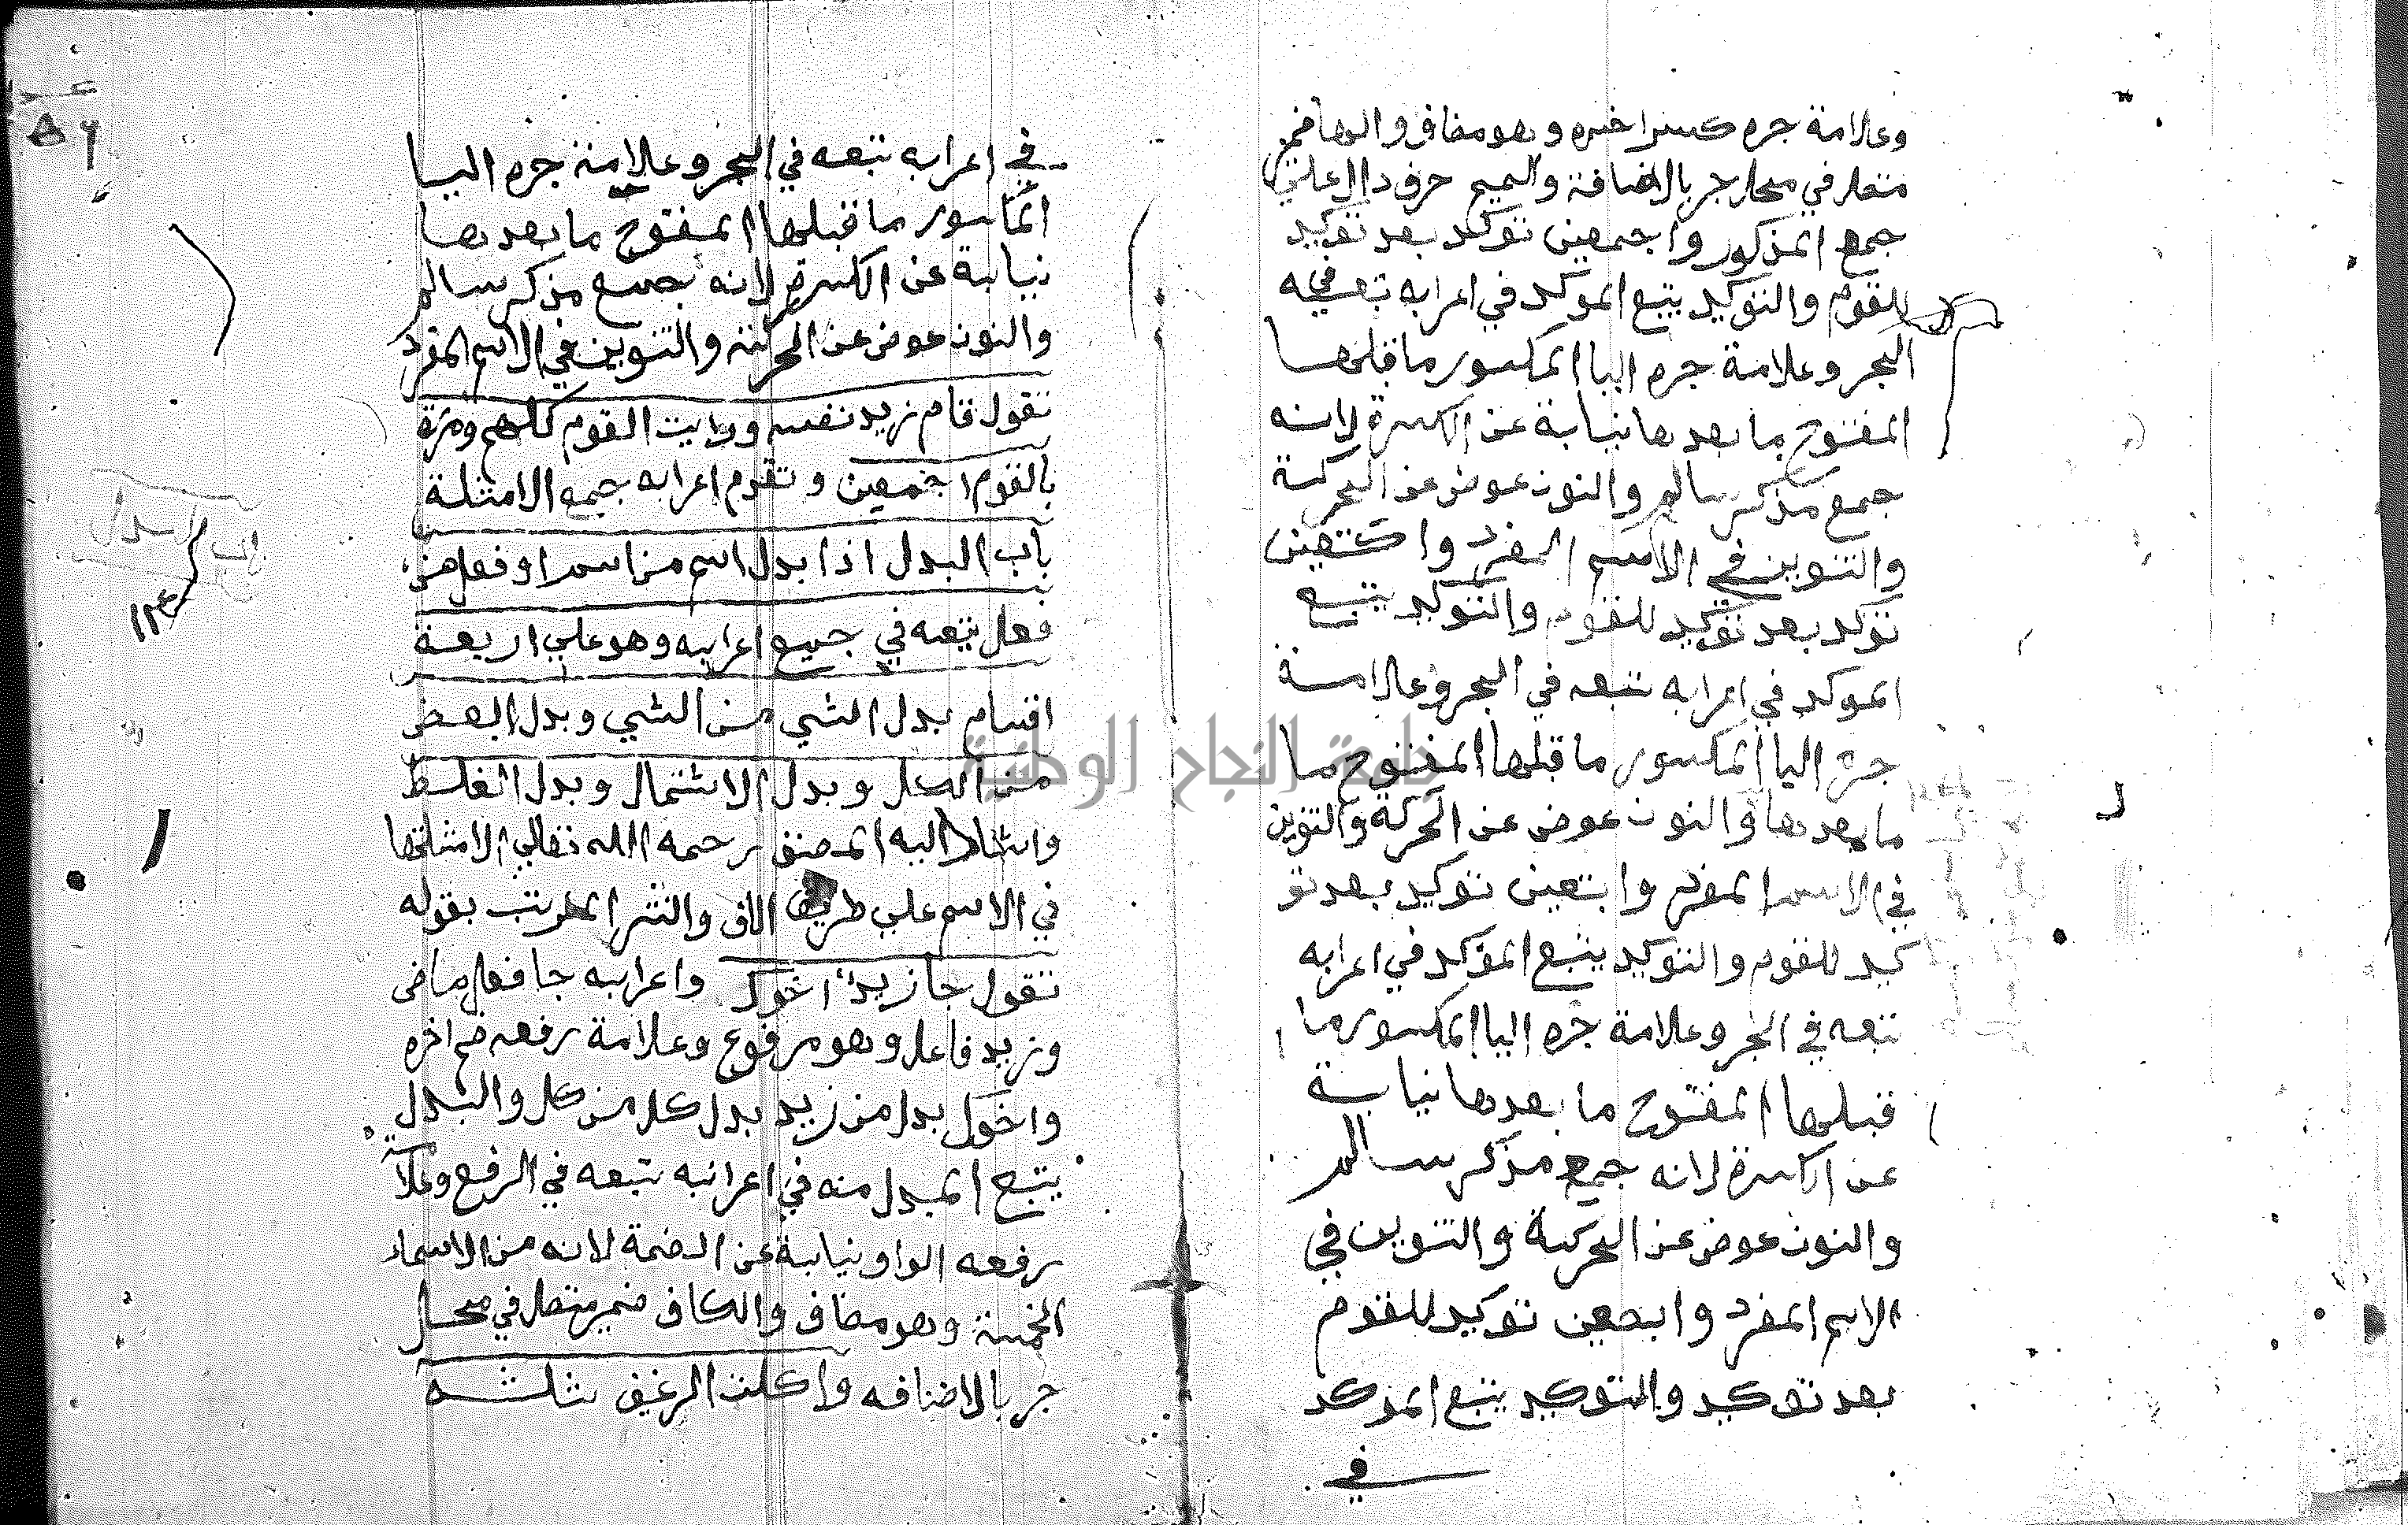 وعلامة جره كسر اخره وهو مضاف والها ضمير
متصل في محل جر بالاضافة والميم حرف دال علي
جمع المذكور واجمعين توكيد بعد توكيد
للقوم والتوكيد يتبع الموكد في اعرابه تبعه في
الجر وعلامة جره اليا المكسور ما قبلها
المفتوح ما بعدها نيابة عن الكسرة لانه
جمع مذكر سالم والنون عوض عن الحركة
والتنوين في الاسم المفرد واكتعين
توكد بعد توكيد للقوم والتوكيد يتبع
الموكد في اعرابه تبعه في الجر وعلامة
جره اليا المكسور ما قبلها المفتوح ما
ما بعدها والنون عوض عن الحركة والتنوين
في الاسم المفرد وابتعين توكيد بعد تو
كيد للقوم والتوكيد يتبع الموكد في اعرابه
تبعه في الجر وعلامة جره اليا المكسور ما
قبلها المفتوح ما بعدها نيابة
عن الكسرة لانه جمع مذكر سالم
والنون عوض عن الحركة والتنوين في
الاسم المفرد وابصعين توكيد للقوم
بعد توكيد والتوكيد يتبع الموكد
في
في اعرابه تبعه في الجر وعلامة جره اليا
المكسور ما قبلها المفتوح ما بعدها
نيابة عن الكسرة لانه جمع مذكر سالم
والنون عوض عن الحركة والتنوين في الاسم المفرد
تقول قام زيد نفسه ورايت القوم كلهم ومررة
بالقوم اجمعين وتقدم اعرابه جميع الامثلة
باب البدل اذا بدل اسم من اسم او فعل من
فعل يتبعه في جميع اعرابه وهو علي اربعة
اقسام بدل الشي من الشي وبدل البعض
من الكل وبدل الاشتمال وبدل الغلط
واشار اليه المصنف رحمه الله تعالي الامثلتها
في الاسم علي طريق الف والنشر المرتب بقوله
تقول جا زيد اخوك واعرابه جا فعل ماض
وزيد فاعل وهو مرفوع وعلامة رفعه ضم اخره
واخوك بدل من زيد بدل كل من كل والبدل
يتبع المبدل منه في اعرابه تبعه في الرفع وعلامة
رفعه الواو نيابة عن الضمة لانه من الاسماء
الخمسة وهو مضاف والكاف ضمير متصل في محل
جر بالاضافه واكلت الرغيف ثلثه
باب البدل
جامعة النجاح الوطنية